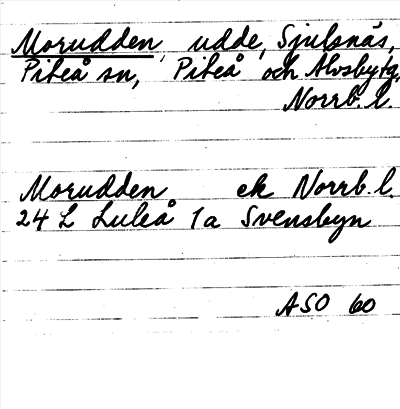 Morudden, udde, Sjulsnäs,
Piteå sn, Piteå och Älvsbytg,
Norrb. l.
Morudden ek Norrb. l.
24 L Luleå 1a Svensbyn
ASO 60